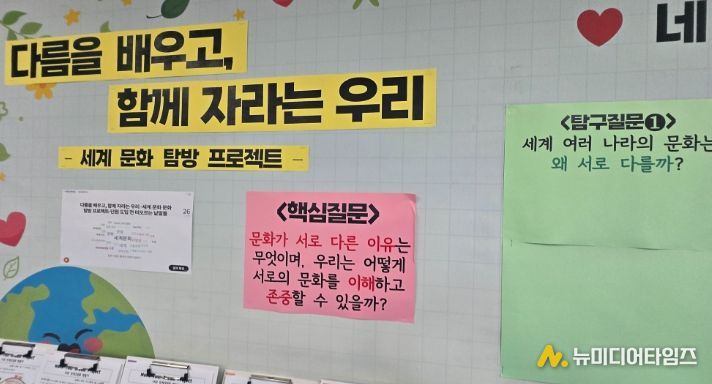 다름을 배우고,
함께 자라는 우리
- 세계 문화 탐방 프로젝트 -
네
<탐구질문❶>
세계 여러 나라의 문화는
왜 서로 다를까?
<핵심질문>
문화가 서로 다른 이유는
무엇이며, 우리는 어떻게
서로의 문화를 이해하고
존중할 수 있을까?
다름을 배우고, 함께 자라는 우리-세계 문화
26
세계문화
뉴미디어타임즈